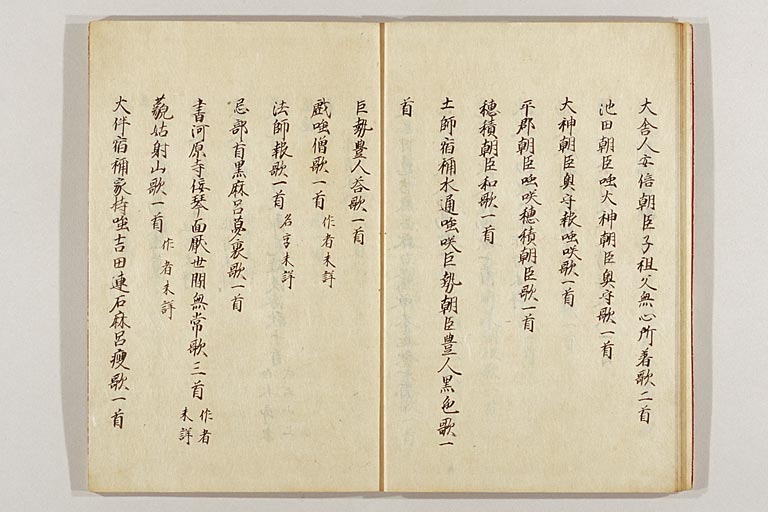 大舎人安倍朝臣子祖父無心所著歌二首
池田朝臣嗤大神朝臣奥守歌一首
大神朝臣奥守報嗤咲歌一首
平郡朝臣嗤咲穂積朝臣歌一首
穂積朝臣和歌一首
土師宿祢水通嗤咲巨勢朝臣豊人黒色歌一
首
巨勢豊人荅歌一首
戯嗤僧歌一首 作者未詳
法師報歌一首 名字未詳
忌部首黒麻呂夢裏歌一首
書河原寺倭琴面厭世間無常歌二首 作者未詳
藐姑射山歌一首 作者未詳
大伴宿祢家持嗤吉田連石麻呂痩歌一首